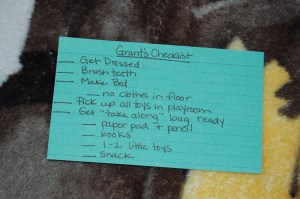 Grant's Checklist
__ Get Dressed
__ Brush teeth
__ Make Bed
__ no clothes in floor
__ Pick up all toys in playroom
__ Get "take along" bag ready
__ paper pad + pencil
__ books
__ 1-2 little toys
__ snack